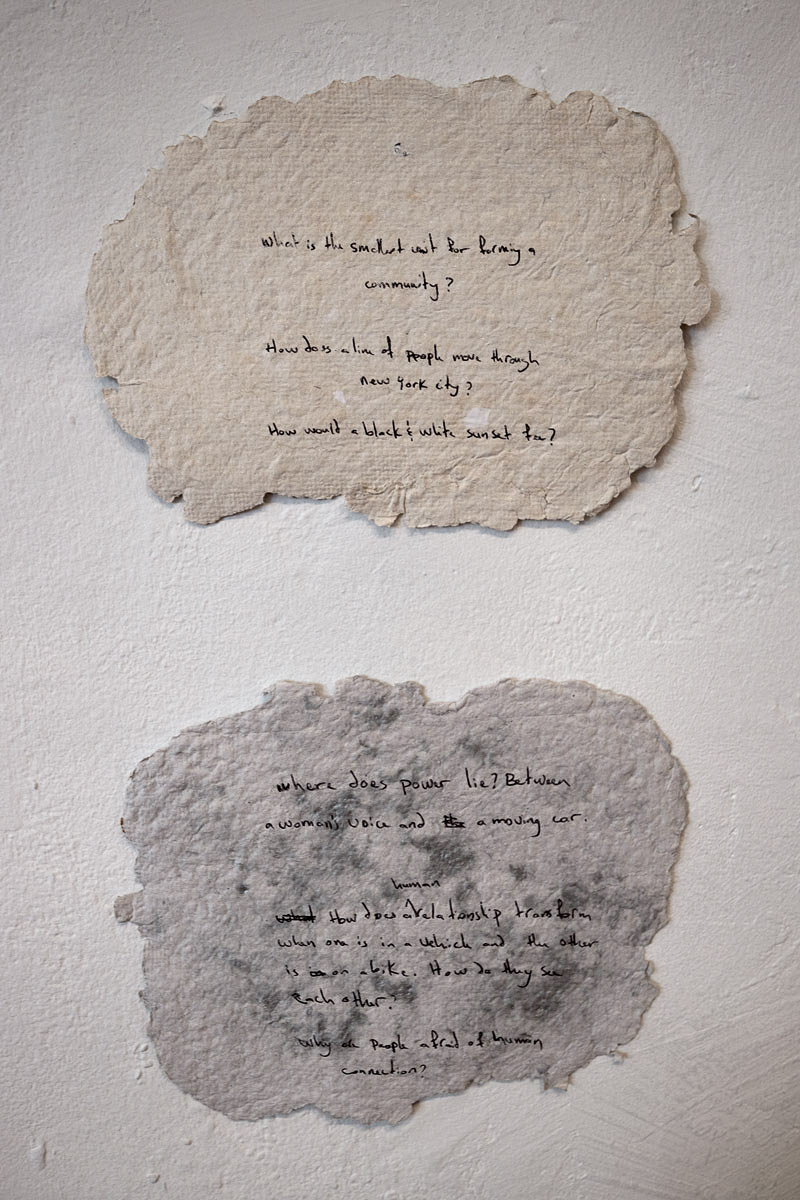 What is the smallest unit for forming a
community?
How does a line of people move through
new york city?
How would a black & white sunset
where does power lie? Between
a woman's voice and a moving car.
human
How does a relationship transform
when one is in a vehicle and the other
is on a bike. How do they see
each other?
Why are people afraid of human
connection?